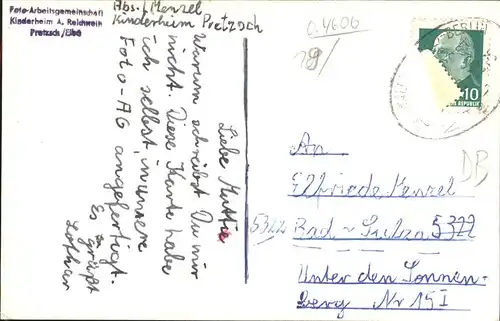 Foto-Arbeitsgemeinschaft
Kinderheim A. Reichwein
Pretzsch / Elbe
Abs.: Menzel
Kinderheim Pretzsch
Liebe Muttie
Warum schreibst Du mir
nicht. Diese Karte habe
ich selbst, in unsere
Foto-AG angefertigt.
Es grüßt
Lothar
a 4606
29/
BERLIN
10
REPUBLIK
DB
An
Elfriede Menzel
5322 Bad-Sulza 5322
Unter den Sonnen-
berg Nr 15I